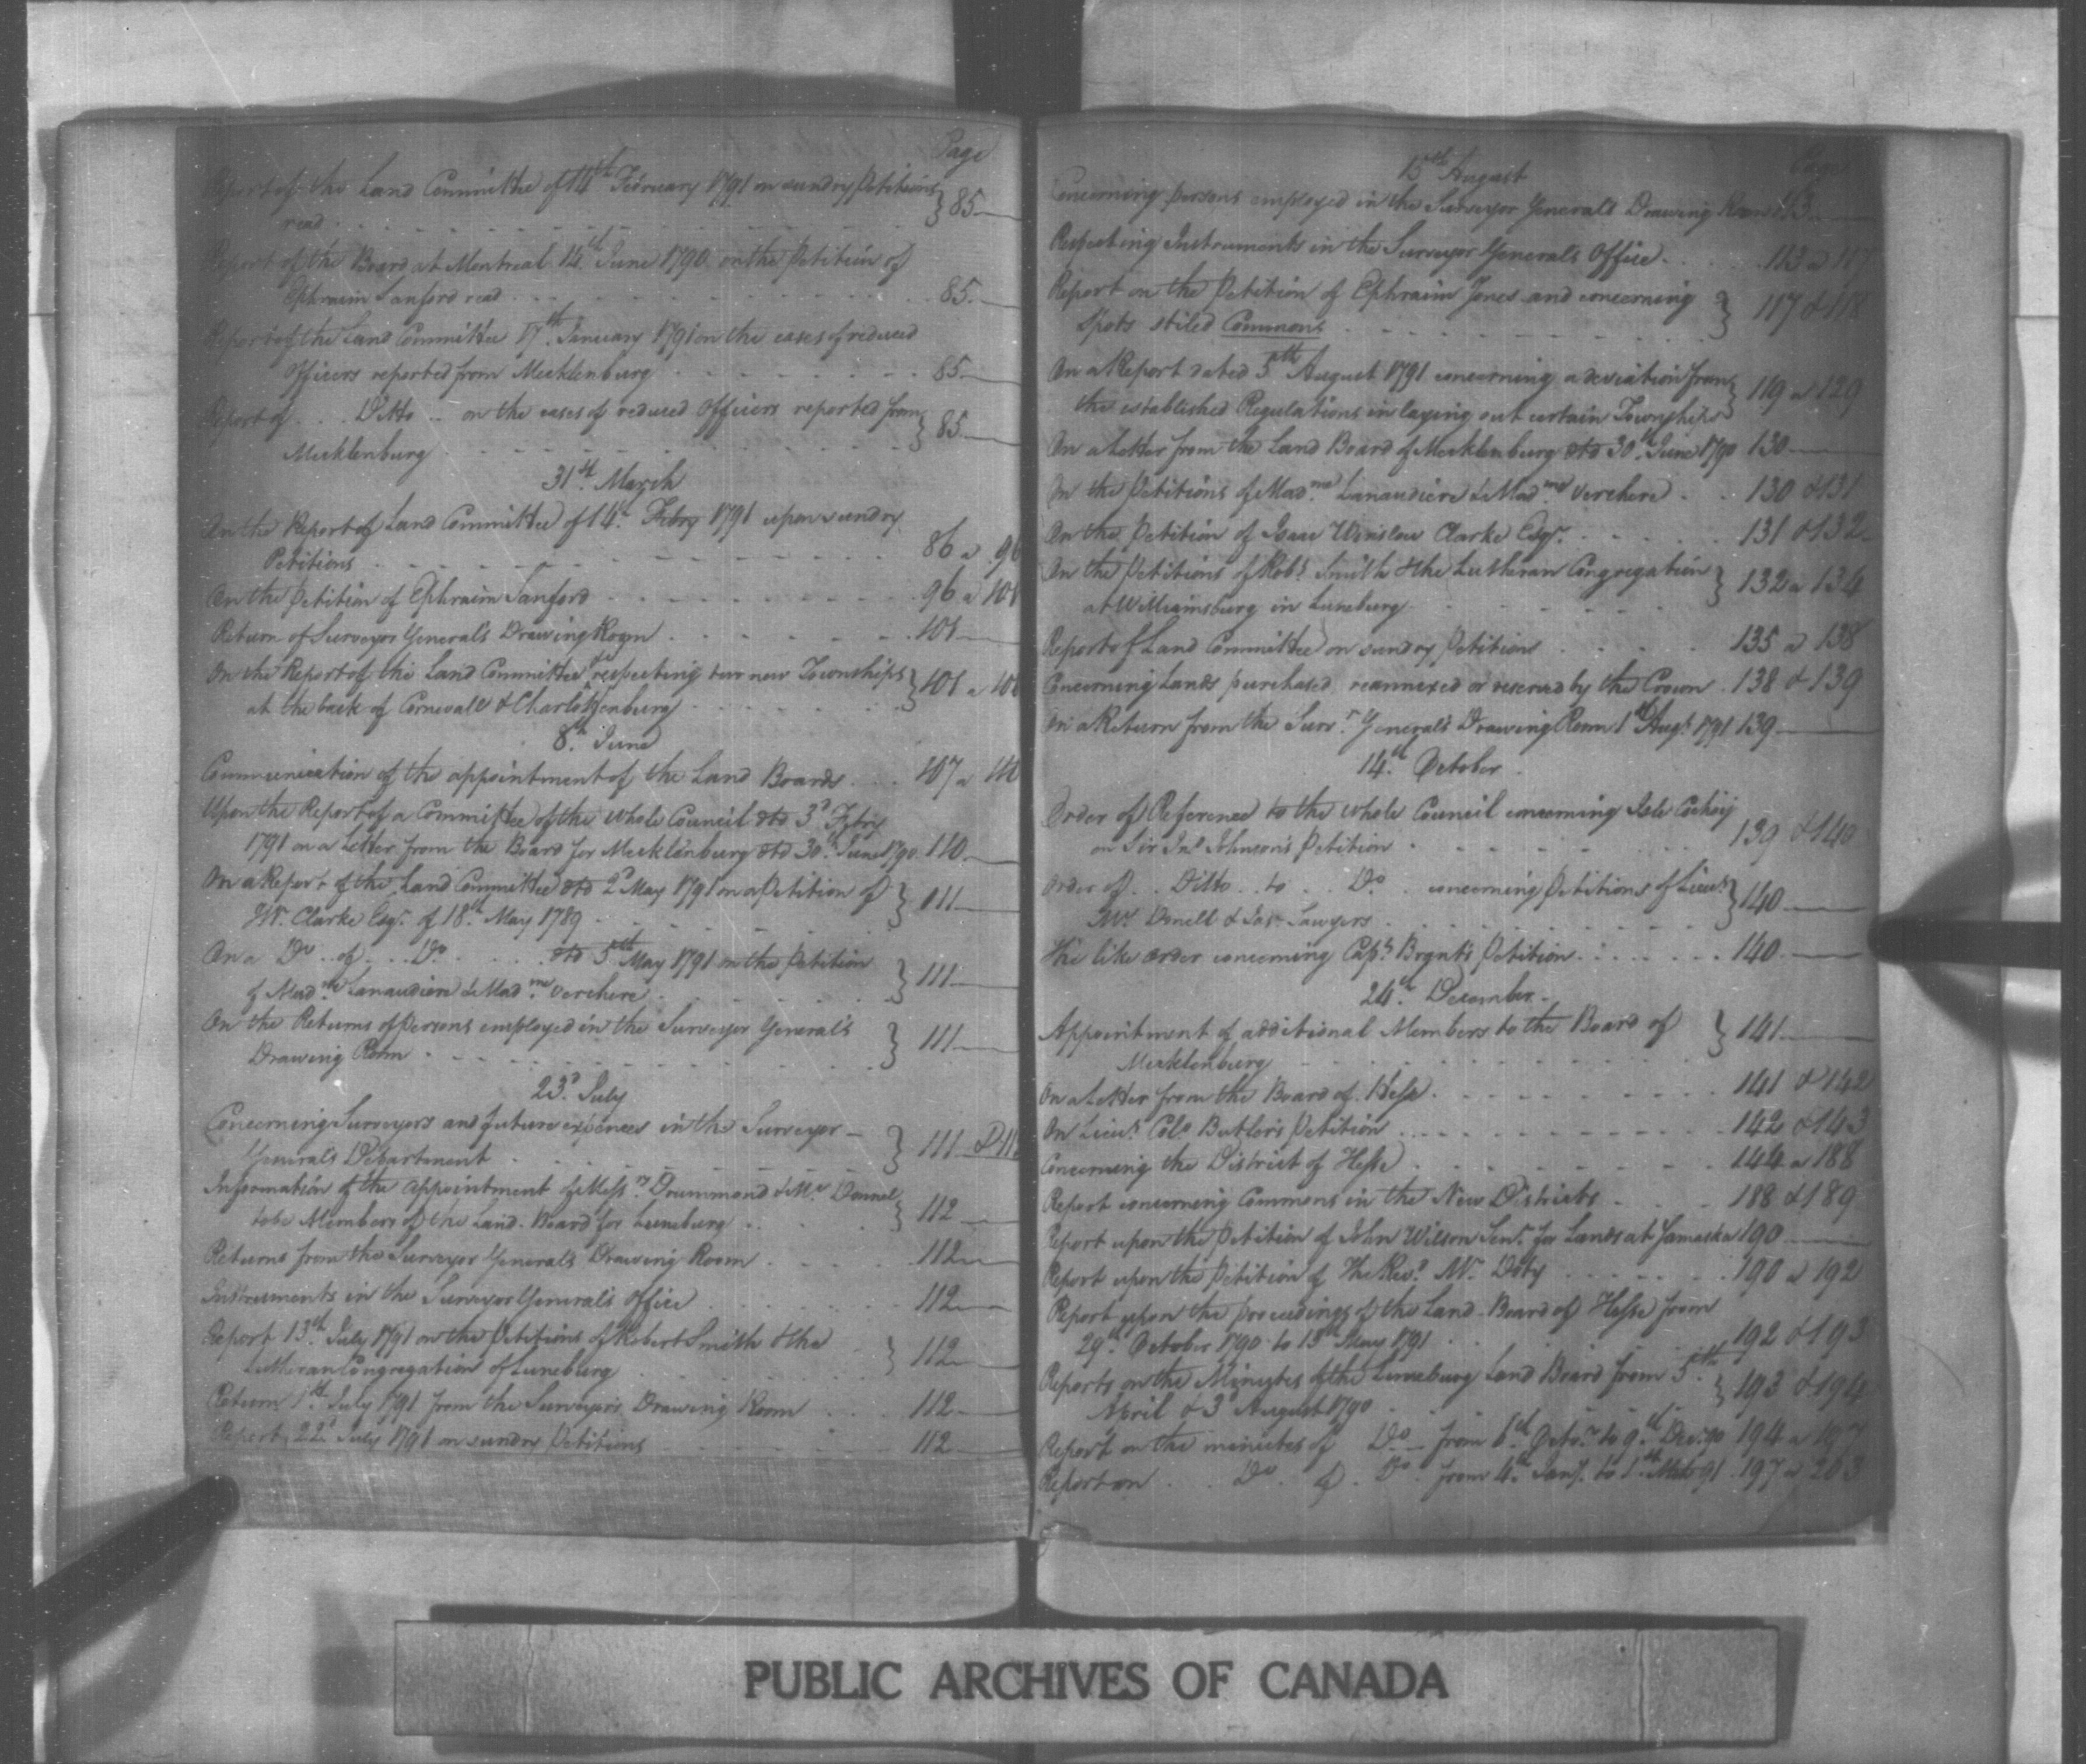 Page
Report of the Land Committee of 14th February 1791 on sundry Petitions
read } 85
Report of the Board at Montreal 14th June 1790 on the Petition of
Ephraim Sanford read 85
Report of the Land Committee 17th January 1791 on the cases of reduced
Officers reported from Mecklenburg 85
Report of Ditto on the cases of reduced Officers reported from
Mecklenburg } 85
31st March
On the Report of Land Committee of 14th Febry 1791 upon sundry
Petitions 86 a 96
On the Petition of Ephraim Sanford 96 a 101
Return of Surveyor General's Drawing Room 101
On the Report of the Land Committee respecting two new Townships
at the back of Cornwall & Charlottenburg } 101 a
8th June
Communication of the appointment of the Land Boards 107 a 110
Upon the Report of a Committee of the whole Council dtd 3d Febry
1791 on a Letter from the Board for Mecklenburg dtd 30th June 1790 110
On a Report of the Land Committee dtd 2d May 1791 on a Petition of
W. Clarke Esqr. of 18th May 1789 } 111
On a Do of Do dtd 5th May 1791 on the Petition
of Madme Lanaudiere & Madme Verchere } 111
On the Returns of Persons employed in the Surveyor General's
Drawing Room } 111
23d July
Concerning Surveyors and future expences in the Surveyor
General's Department } 111 &
Information of the appointment of Messrs Drummond & Mc Donnel
to be Members of the Land Board for Luneburg } 112
Returns from the Surveyor General's Drawing Room 112
Instruments in the Surveyor General's Office 112
Report 13th July 1791 on the Petitions of Robert Smith & the
Lutheran Congregation of Luneburg } 112
Return 1st July 1791 from the Surveyors Drawing Room 112
Report 22d July 1791 on sundry Petitions 112
Page
15th August
Concerning persons employed in the Surveyor General's Drawing Room 113
Respecting Instruments in the Surveyor General's Office 113 a 117
Report on the Petition of Ephraim Jones and concerning
Spots stiled Commons } 117 & 118
On a Report dated 5th August 1791 concerning a deviation from
the established Regulations in laying out certain Townships } 119 a 129
On a Letter from the Land Board of Mecklenburg dtd 30th June 1790 130
On the Petitions of Madme Lanaudiere & Madme Verchere 130 & 131
On the Petition of Isaac Winslow Clarke Esqr. 131 & 132
On the Petitions of Robt Smith & the Lutheran Congregation
at Williamsburg in Luneburg } 132 a 134
Report of Land Committee on sundry Petitions 135 a 138
Concerning Lands purchased reannexed or reserved by the Crown 138 & 139
On a Return from the Survr General's Drawing Room 1st Augt 1791 139
14th October
Order of Reference to the whole Council concerning Isle
on Sir Jno Johnson's Petition 139 & 140
Order of Ditto to Do concerning Petitions of Lieuts
Mc Donell & Jas Sawyers } 140
The like order concerning Capt Brant's Petition 140
24th December
Appointment of additional Members to the Board of
Mecklenburg } 141
On a Letter from the Board of Hesse 141 & 142
On Lieut Colo Butler's Petition 142 & 143
Concerning the District of Hesse 144 a 188
Report concerning Commons in the New Districts 188 & 189
Report upon the Petition of John Wilson Senr for Lands at Yamaska 190
Report upon the Petition of The Revd Mr. Doty 190 a 192
Report upon the proceedings of the Land Board of Hesse from
29th October 1790 to 13th May 1791 192 & 193
Reports on the Minutes of the Luneburg Land Board from 5th
April & 3d August 1790 } 193 & 194
Report on the minutes of Do from 6th Octor to 9th Decr 90 194 a 197
Report on Do of Do from 4th Jany to 1st 91 197 a 203
PUBLIC ARCHIVES OF CANADA